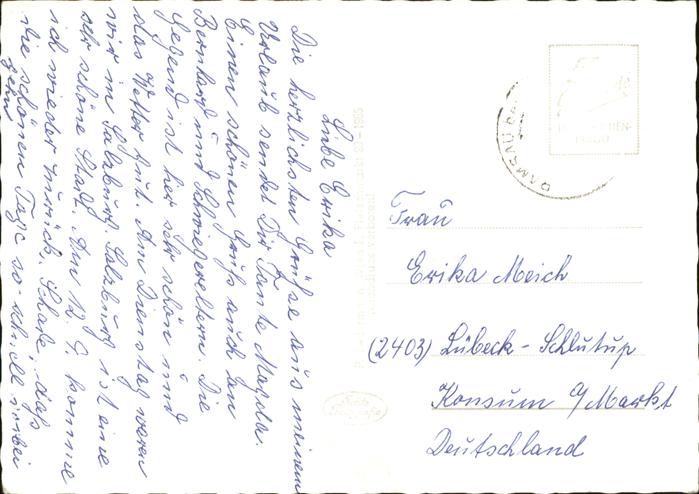 Liebe Erika
Die herzlichsten Grüße aus meinem
Urlaub sendet Dir Tante Magda.
Einen schönen Gruß auch an
Bernhard und Schwiegereltern. Die
Gegend ist hier sehr schön und
das Wetter gut. Am Dienstag waren
wir in Salzburg. Salzburg ist eine
sehr schöne Stadt. Am 12. 9. komme
ich wieder zurück. Schade, daß
die schönen Tage so schnell vorbei
gehn
Frau
Erika Meich
(2403) Lübeck - Schlutup
Konsum a/Markt
Deutschland
RAMSAU